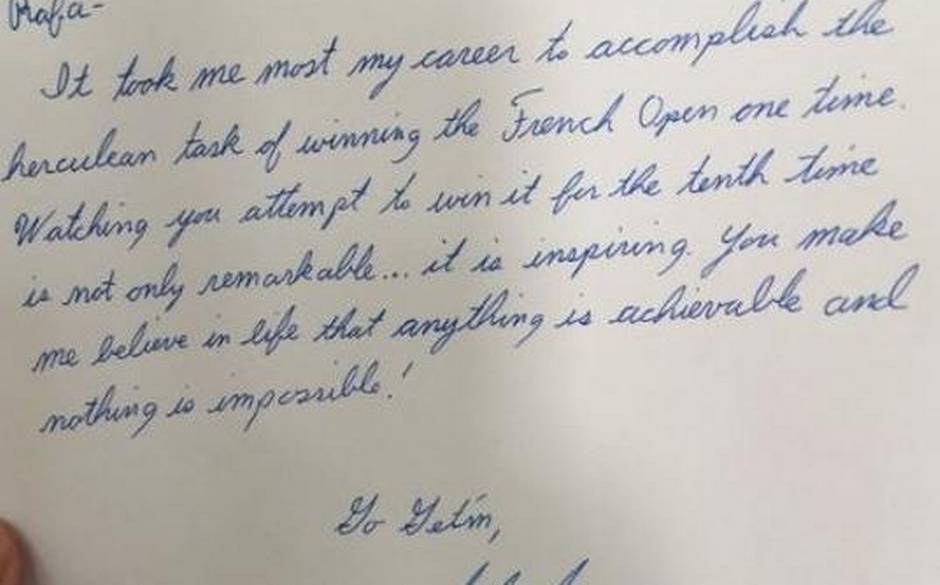 Rafa-
It took me most my career to accomplish the
herculean task of winning the French Open one time.
Watching you attempt to win it for the tenth time
is not only remarkable... it is inspiring. You make
me believe in life that anything is achievable and
nothing is impossible!
Go Get'm,